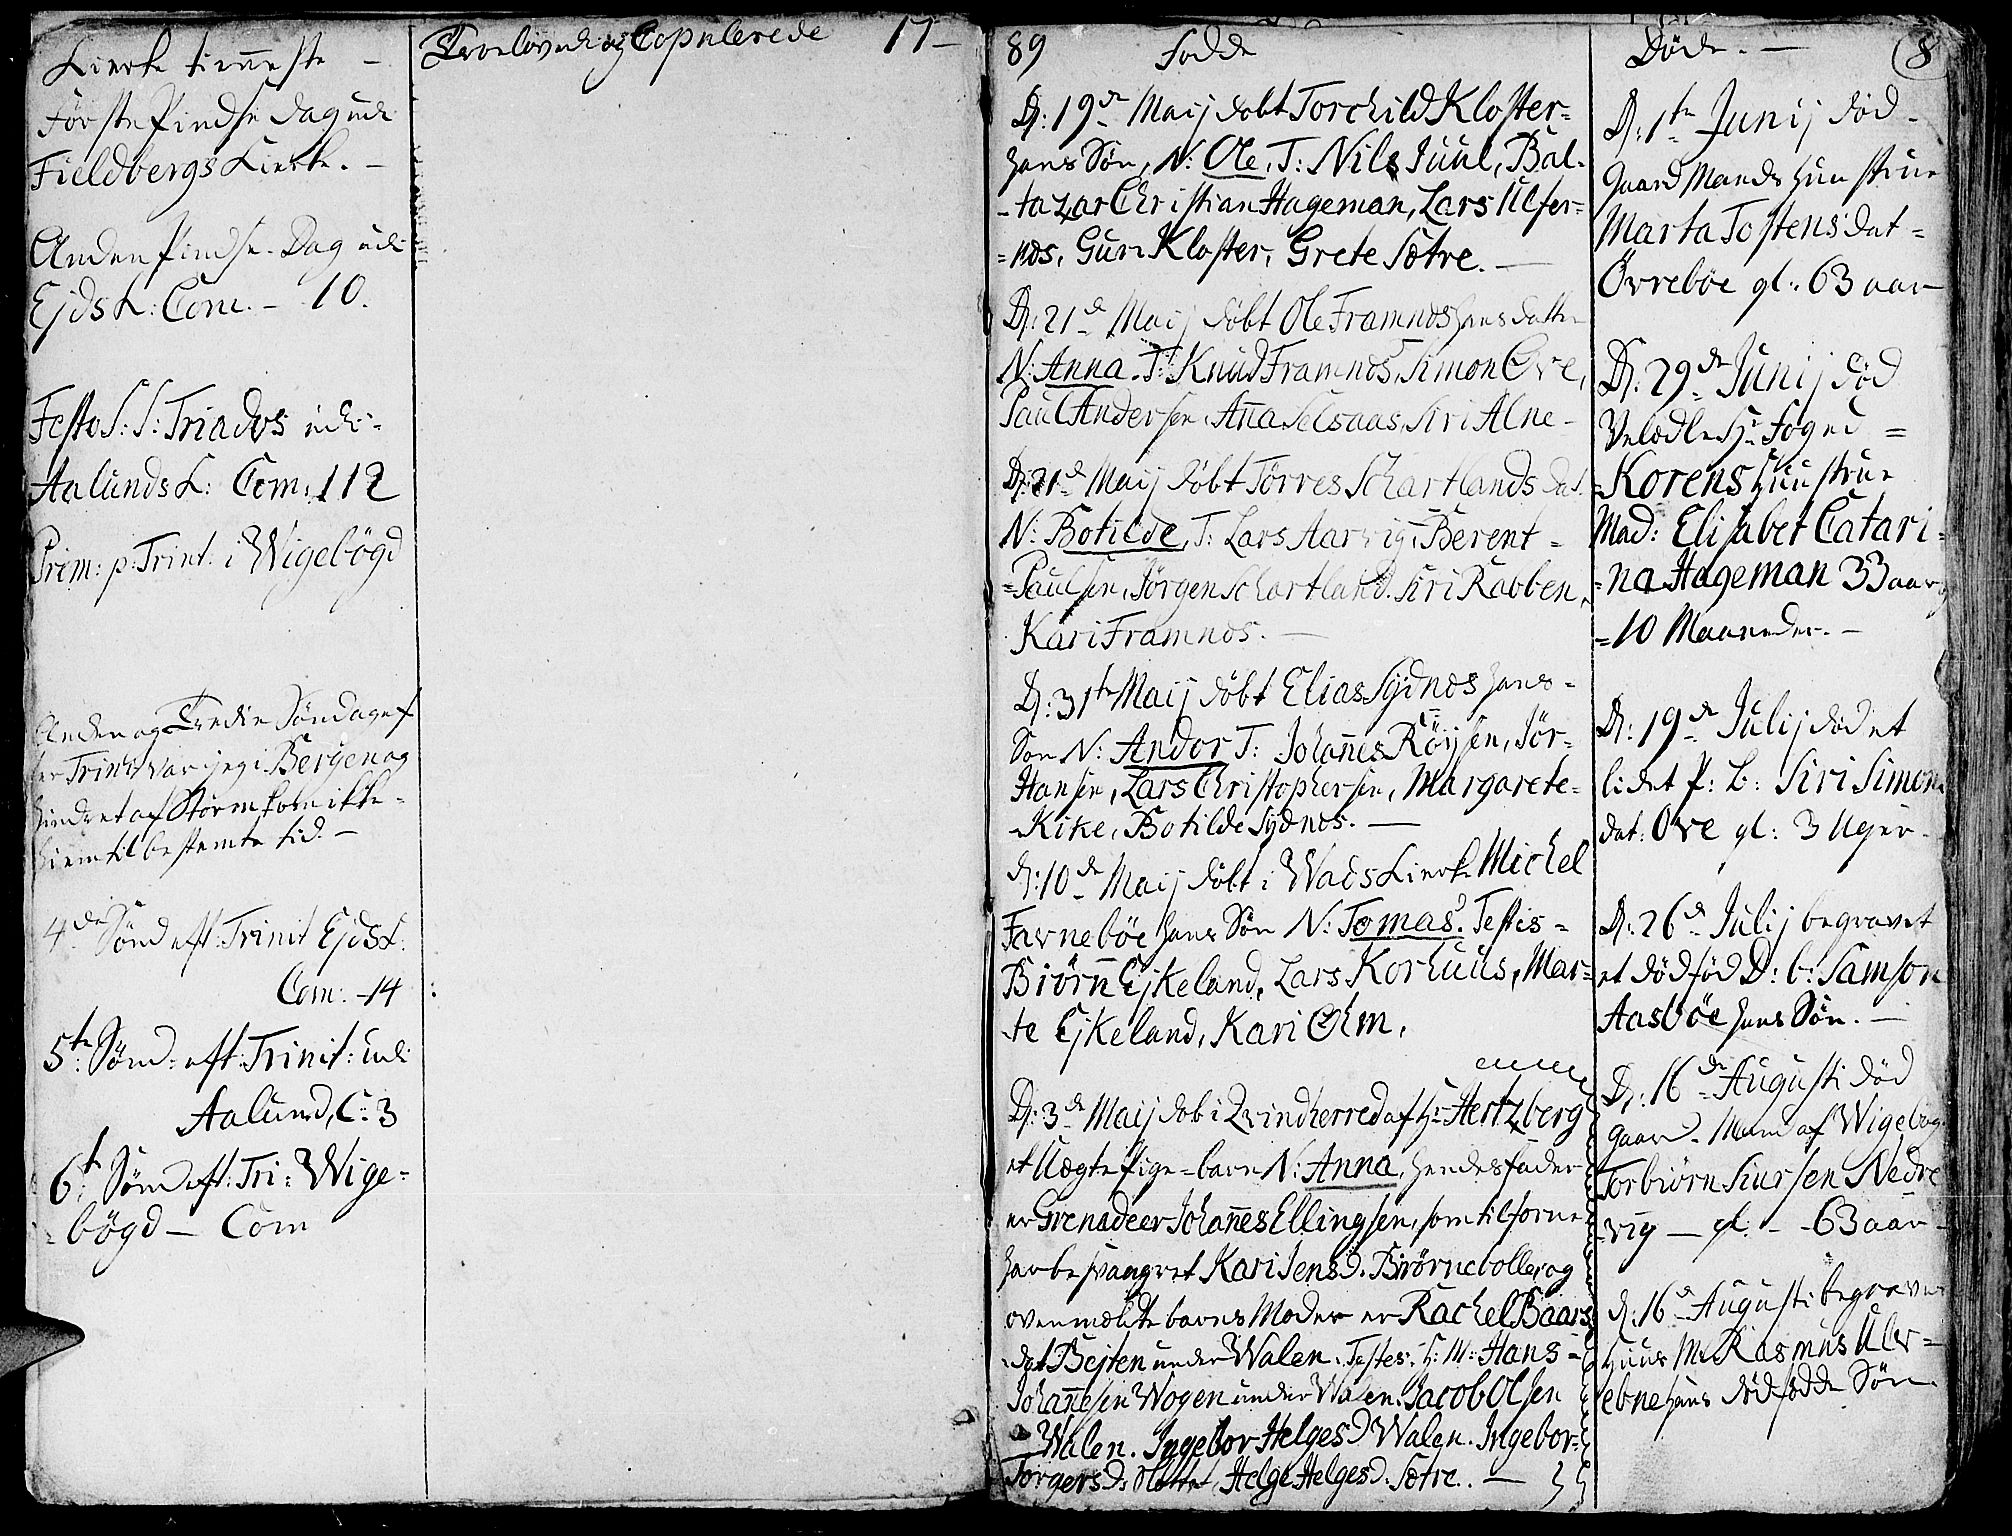 Kierke tienneste —
Første Pindse dag udi
Fieldbergs Kierke. —
Anden Pindse-Dag udi
Ejds K: Com. — 10.
Festo S: S: Triados udi-
Aalunds K: Com: 112
Prim: p: Trint: i Wigebøgd
Anden og Tredie Søndag ef
ter Trinit var jeg i Bergen og
hindret af Storm kom ikke-
hiem til bestemte tid. —
4de Sønd eft: Trinit Ejds K:
Com: — 14
5te Sønd: eft: Trinit: udi
Aalund, C: 3
6te Sønd eft: Tri: Wige-
bøgd — Com
Troelovede og Copulerede 17—
89 Fødde
D: 19de Maij døbt Torchild Kloster-
hans Søn, N: Ole, T: Nils Juul, Bal-
-tazar Christian Hageman, Lars Ulfer-
=nøs, Guri Kloster, Grete Sætre. —
D: 21de Maij døbt Ole Framnøs hans datter
N: Anna. T: Knud Framnøs, Simon Ove,
Paul Andersen, Anna Selsaas, Siri Alne-
D: 21de Maij døbt Tørres Schartlands dat.
N: Botilde, T: Lars Aarvig, Berent =
=Paulsen, Jørgen Schartland. Siri Rabben,
Kari Framnøs. —
D: 31te Maij døbt Elias Sydnøs hans-
Søn N: Andor T: Johannes Røysen, Jør-
Hansen, Lars Christophersen, Margarete-
-Kike, Botilde Sydnøs. —
d: 10de Maij døbt i Wads Kierk Michel
Farnebøe hans Søn N: Tomas. Testis =
Biørn Ejkeland, Lars Korhuus, Mar-
te Ejkeland, Kari Ohm,
D: 3de Maij døb i Qvindherred af Hr Hertzberg
et Uægte Pige-barn N: Anna, hendes fader
er Grenadeer Johannes Ellingsen, som tilforne
har besvangret Kari Jensd. Biørnebolle, og
ovenmældte barns Moder er Rachel Baars
dat Bejten under Walen. Testes: H: M: Hans-
Johannesen Wogen under Walen. Jacob Olsen
Walen. Ingebor Helgesd Walen. Ingebor-
Torgersd: Helge Helgesd. Sætre. —
Døde. — 8
D: 1te Junij død-
Gaard Mands Hustrue
Marta Tostens dat =
Øvrebøe gl: 63 aar
D: 29de Junij død
Velædle Hr Foged =
=Korens Hustrue
Mad: Elisabet Catari=
=na Hageman 33 aar
=10 Maaneder. —
D: 19de Julij død et
lidet P: b: Siri Simons
dat: Ove gl: 3 Uger-
D: 26de Julij begravet
et dødfød D: b: Samson
Aasbøe hans Søn. —
D: 16de Augusti død
Gaard-Mand af Wigebøg
Torbiørn Siursen Nedre
=vig — gl. — 63 aar-
d: 16de Augusti begraven
Huus M: Rasmus Ulv-
ebne hans dødfødde Søn